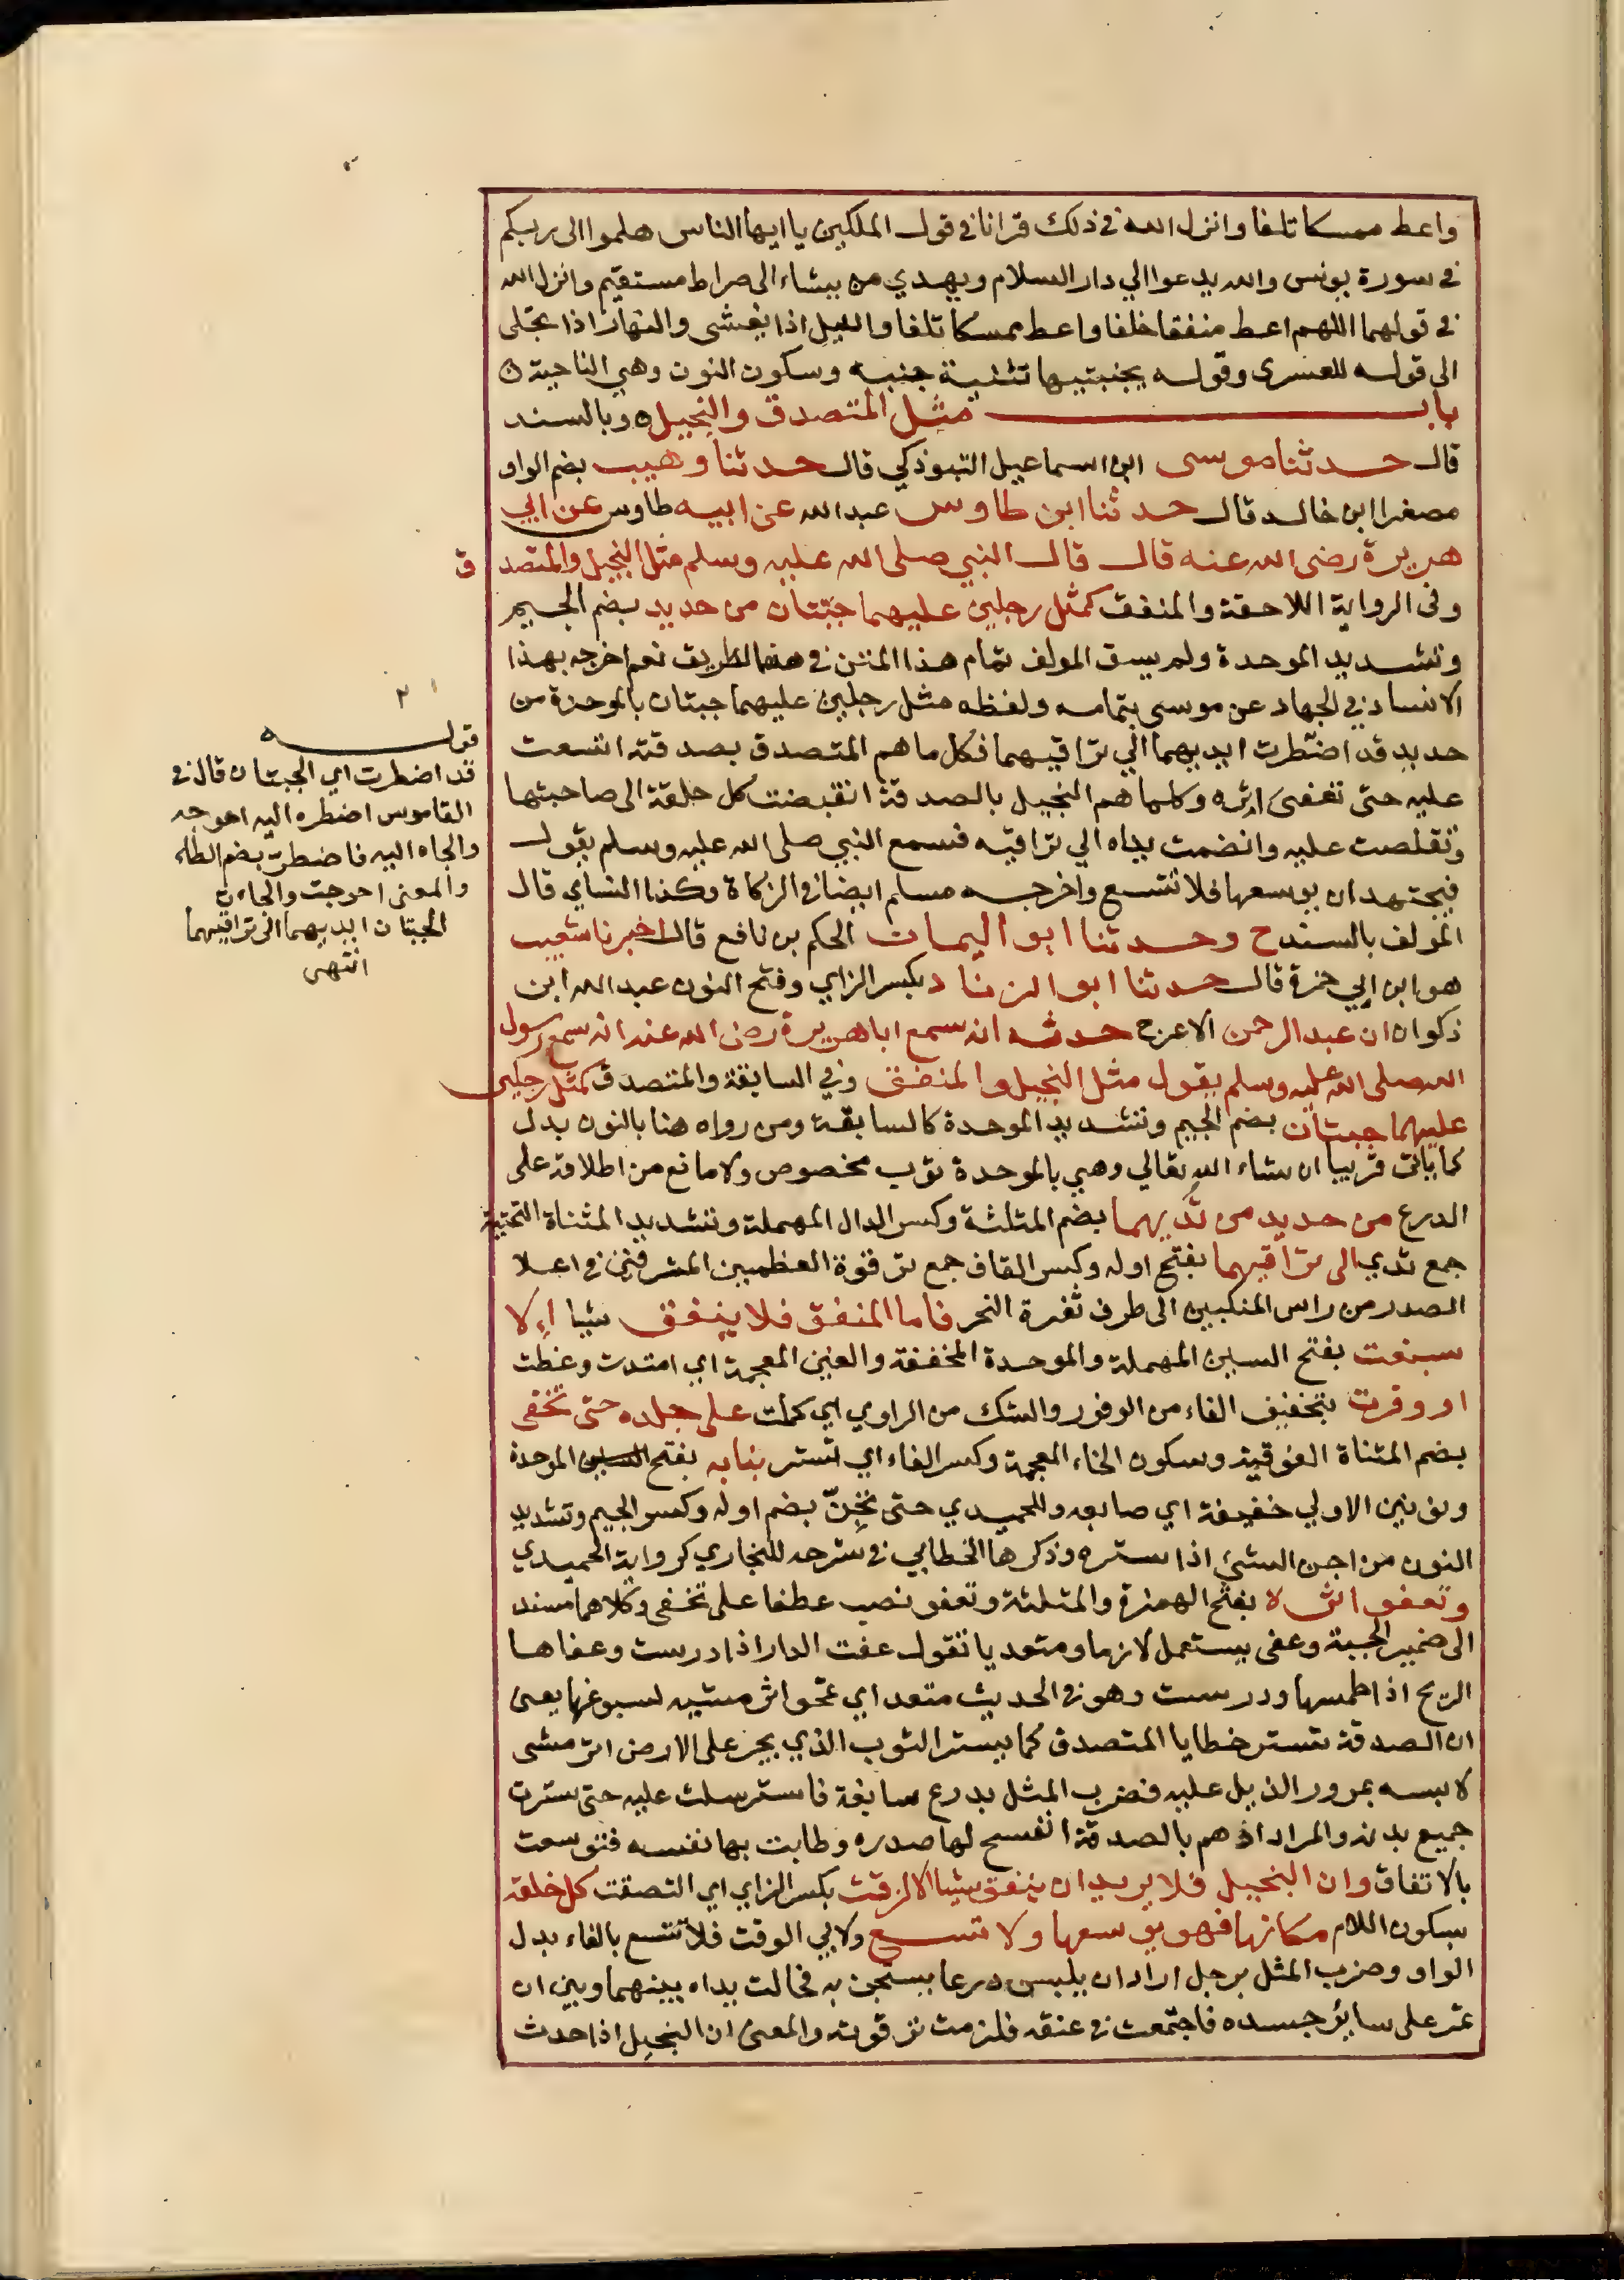 واعط ممسكا تلفا وانزل الله في ذلك قرانا في قول الملكين يا ايها الناس هلموا الى ربكم
في سورة يونس والله يدعوا الي دار السلام ويهدي من يشاء الى صراط مستقيم وانزل الله
في قولهما اللهم اعط منفقا خلفا واعط ممسكا تلفا والليل اذا يغشى والنهار اذا تجلى
الى قوله للعسرى وقوله بجنبتيها تثنية جنبه وسكون النون وهي الناحية
باب مثل المتصدق والبخيل وبالسند
قال حدثنا موسى ابن اسماعيل التبوذكي قال حدثنا وهيب بضم الواو
مصغرا ابن خالد قال حدثنا ابن طاوس عبد الله عن ابيه طاوس عن ابي
هريرة رضي الله عنه قال قال النبي صلى الله عليه وسلم مثل البخيل والمتصدق
وفى الرواية اللاحقة والمنفق كمثل رجلين عليهما جبتان من حديد بضم الجيم
وتشديد الموحدة ولم يسق المولف تمام هذا المتن في هذا الطريق نعم اخرجه بهذا
الاسناد في الجهاد عن موسى بتمامه ولفظه مثل رجلين عليهما جبتان بالموحدة من
حديد قد اضطرت ايديهما الي تراقيهما فكل ما هم المتصدق بصدقته اتسعت
عليه حتى تعفى اثره وكلما هم البخيل بالصدقة انقبضت كل حلقة الى صاحبتها
وتقلصت عليه وانضمت يداه الي تراقيه فسمع النبي صلى الله عليه وسلم يقول
فيجتهد ان يوسعها فلا تتسع واخرجه مسلم ايضا في الزكاة وكذا النساي قال
المولف بالسند ح وحدثنا ابو اليمان الحكم بن نافع قال اخبرنا شعيب
هو ابن ابي حمزة قال حدثنا ابو الزناد بكسر الزاي وفتح النون عبد الله ابن
ذكوان ان عبد الرحمن الاعرج حدثه انه سمع ابا هريرة رضي الله عنه انه سمع رسول
الله صلى الله عليه وسلم يقول مثل البخيل والمنفق وفي السابقة والمتصدق كمثل رجلين
عليهما جبتان بضم الجيم وتشديد الموحدة كالسابقة ومن رواه هنا بالنون بدل
كما ياتى قريبا ان شاء الله تعالي وهي بالموحدة ثوب مخصوص ولا مانع من اطلاقه على
الدرع من حديد من ثديهما بضم المثلثة وكسر الدال المهملة وتشديد المثناة التحتية
جمع ثدي الى تراقيهما بفتح اوله وكسر القاف جمع ترقوة العظمين المشرفين في اعلا
الصدر من راس المنكبين الى طرف ثغرة النحر فاما المنفق فلا ينفق شيا الا
سبغت بفتح السين المهملة والموحدة المخففة والغين المعجمة اي امتدت وغطت
او وفرت بتخفيف الفاء من الوفور والشك من الراوي اي كملت على جلده حتى تخفى
بضم المثناة الفوقية وسكون الخاء المعجمة وكسر الفاء اي تستر بنانه بفتح الموحدة
ونونين الاولي خفيفة اي صابعه وللحميدي حتى تجن بضم اوله وكسر الجيم وتشديد
النون من اجن الشئ اذا ستره وذكرها الخطابي في شرحه للبخاري كرواية الحميدي
وتعفو اثره بفتح الهمزة والمثلثة وتعفو نصب عطفا على تخفى وكلاهما مسند
الى ضمير الجبة وعفى يستعمل لازما ومتعديا تقول عفت الدار اذا درست وعفاها
الريح اذا طمسها ودرست وهو في الحديث متعد اي تمحو اثر مشيه لسبوغها يعنى
ان الصدقة تستر خطايا المتصدق كما يستر الثوب الذي يجر على الارض اثر مشى
لابسه بمرور الذيل عليه فضرب المثل بدرع سابغة فاسترسلت عليه حتى سترت
جميع بدنه والمراد اذ هم بالصدقة انفسح لها صدره وطابت بها نفسه فتوسعت
بالانفاق وان البخيل فلا يريد ان ينفق شيا الا لزقت بكسر الزاي اي التصقت كل حلقة
بسكون اللام مكانها فهو يوسعها ولا تتسع ولابي الوقت فلا تتسع بالفاء بدل
الواو وضرب المثل برجل اراد ان يلبس درعا يستجن به فحالت يداه بينهما وبين ان
تمر على سائر جسده فاجتمعت في عنقه فلزمت ترقوته والمعنى ان البخيل اذا حدث
٢
قوله
قد اضطرت اي الجبتان قال في
القاموس اضطره اليه احوجه
والجاه اليه فاضطر بضم الطاء
والمعنى احوجت والجات
الجبتان ايديهما الى تراقيهما
انتهى